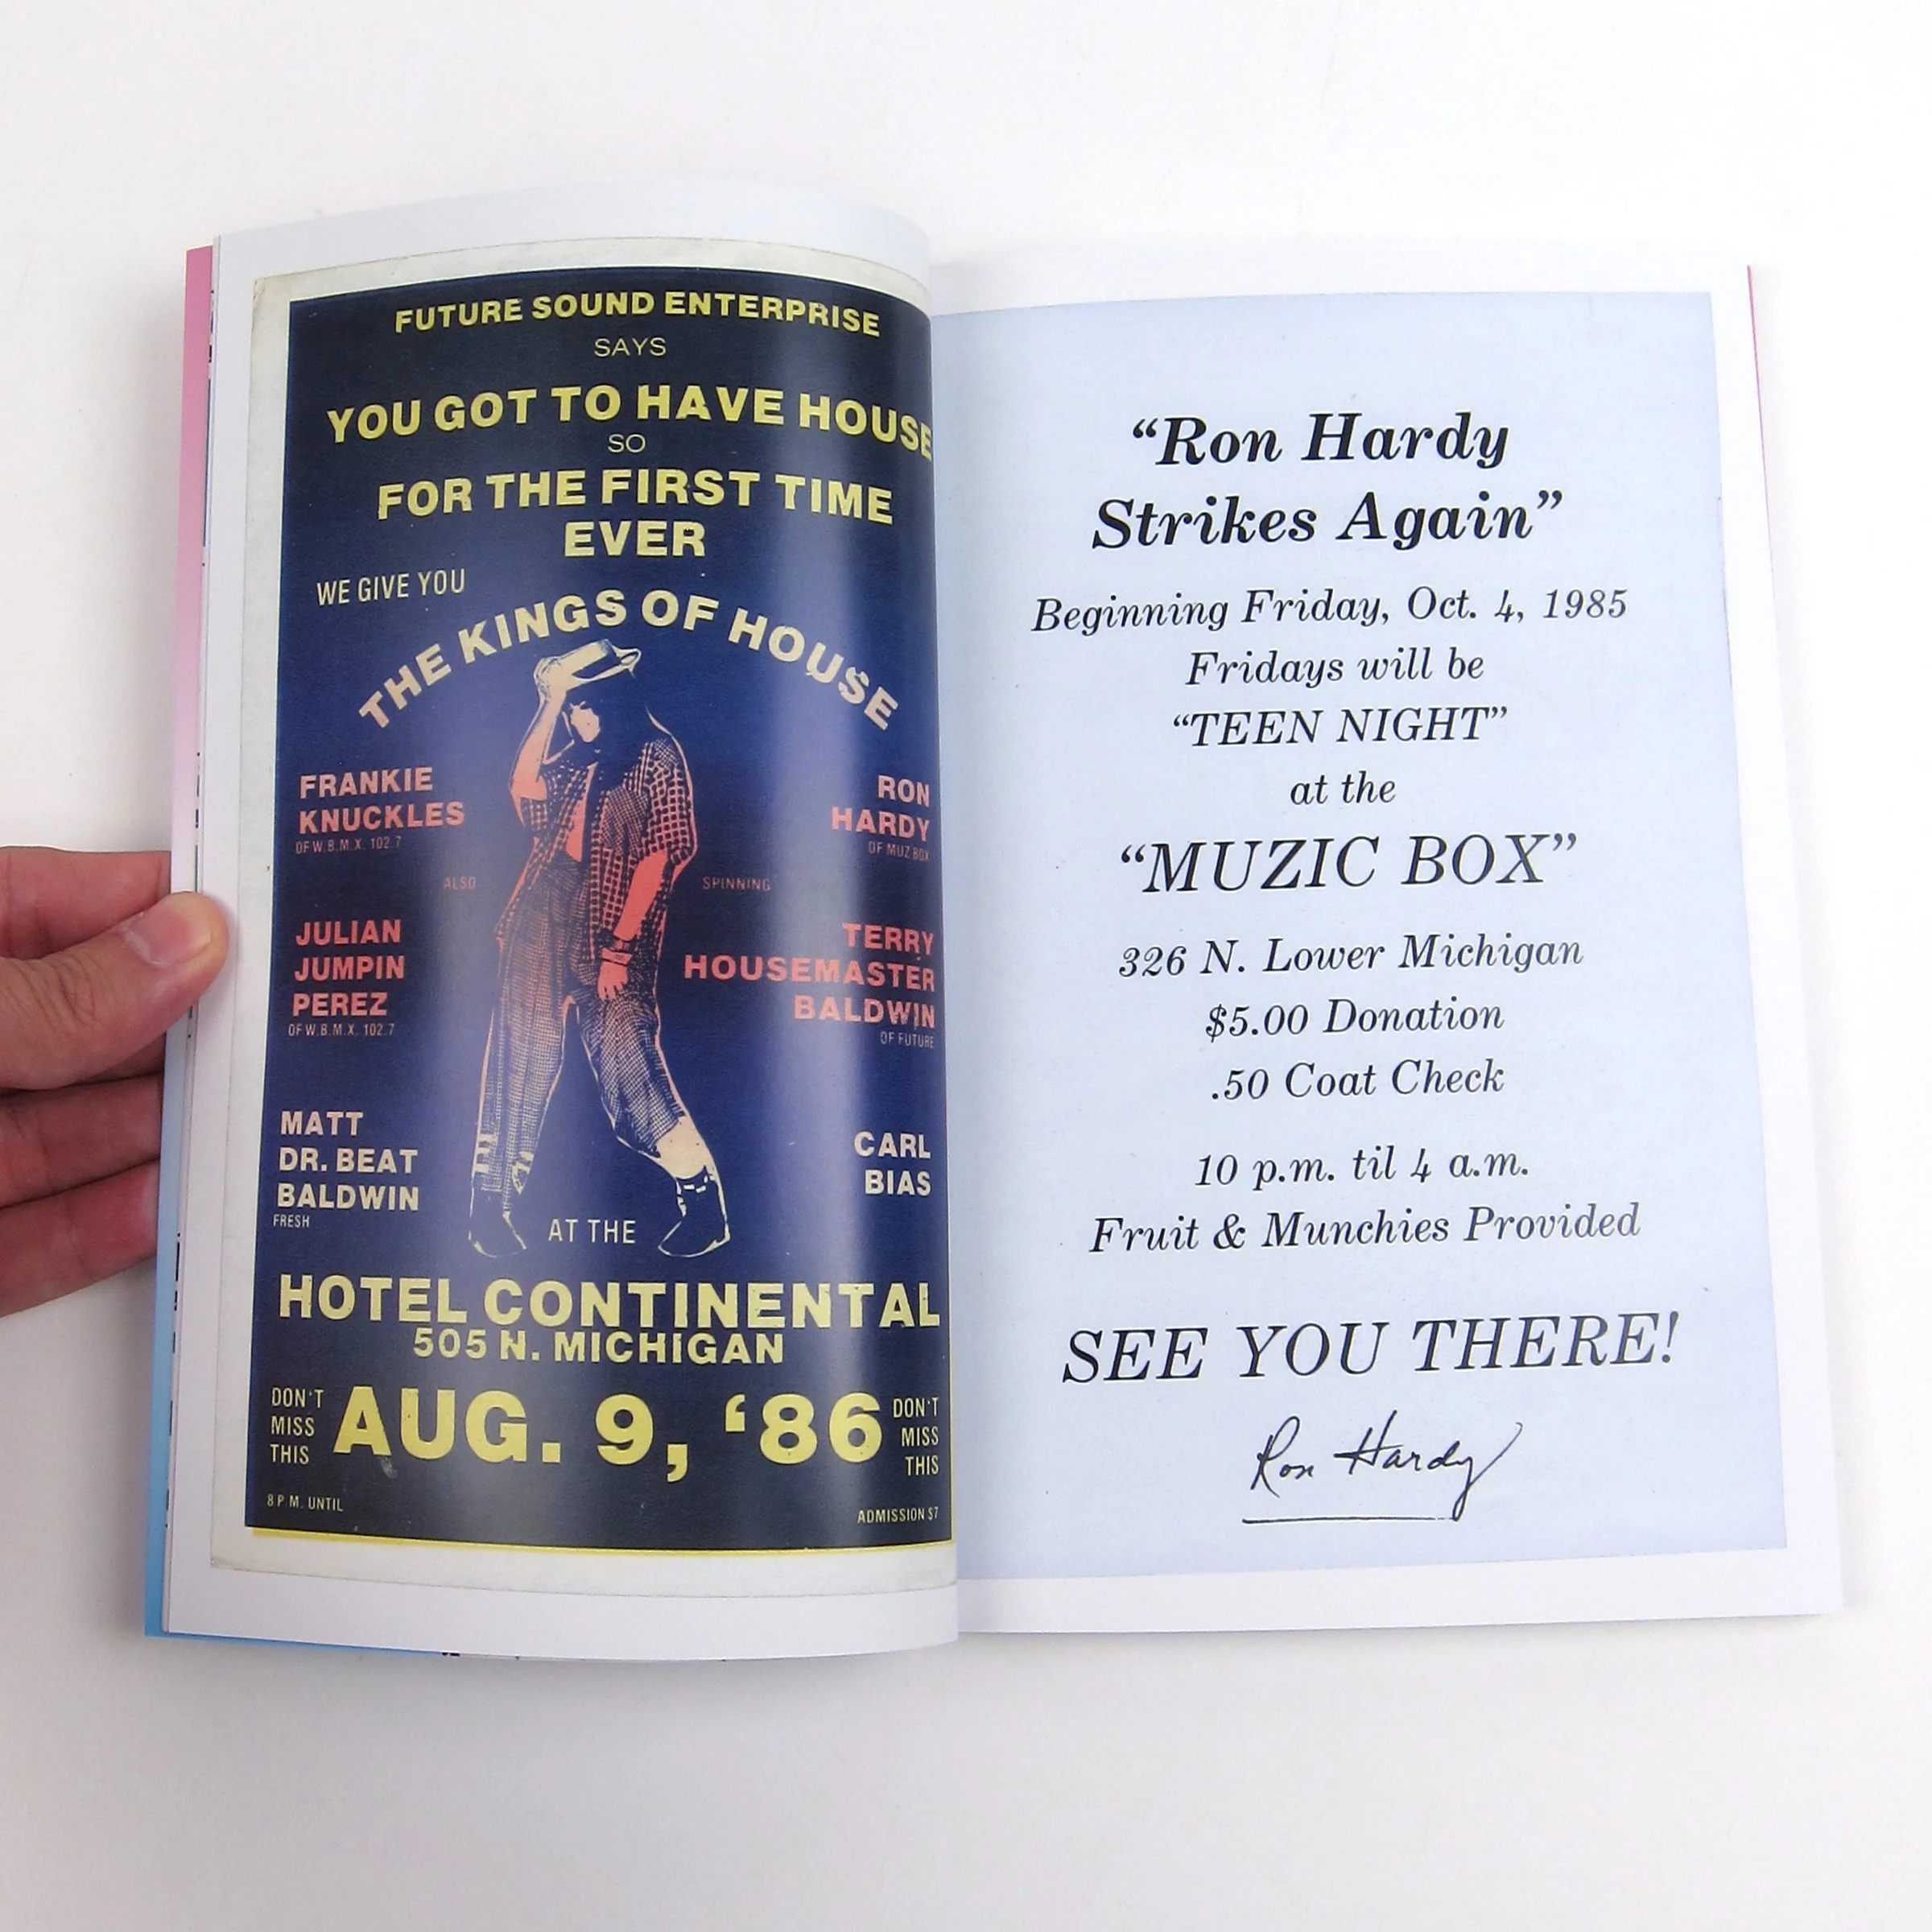 FUTURE SOUND ENTERPRISE
SAYS
YOU GOT TO HAVE HOUSE
SO
FOR THE FIRST TIME
EVER
WE GIVE YOU
THE KINGS OF HOUSE
FRANKIE
KNUCKLES
OF W.B.M.X. 102.7
RON
HARDY
OF MUZ BOX
ALSO
SPINNING
JULIAN
JUMPIN
PEREZ
OF W.B.M.X. 102.7
TERRY
HOUSEMASTER
BALDWIN
OF FUTURE
MATT
DR. BEAT
BALDWIN
FRESH
CARL
BIAS
AT THE
HOTEL CONTINENTAL
505 N. MICHIGAN
DON'T
MISS
THIS
AUG. 9, ‘86
DON'T
MISS
THIS
8 P.M. UNTIL
ADMISSION $7
“Ron Hardy
Strikes Again”
Beginning Friday, Oct. 4, 1985
Fridays will be
“TEEN NIGHT”
at the
“MUZIC BOX”
326 N. Lower Michigan
$5.00 Donation
.50 Coat Check
10 p.m. til 4 a.m.
Fruit & Munchies Provided
SEE YOU THERE!
Ron Hardy